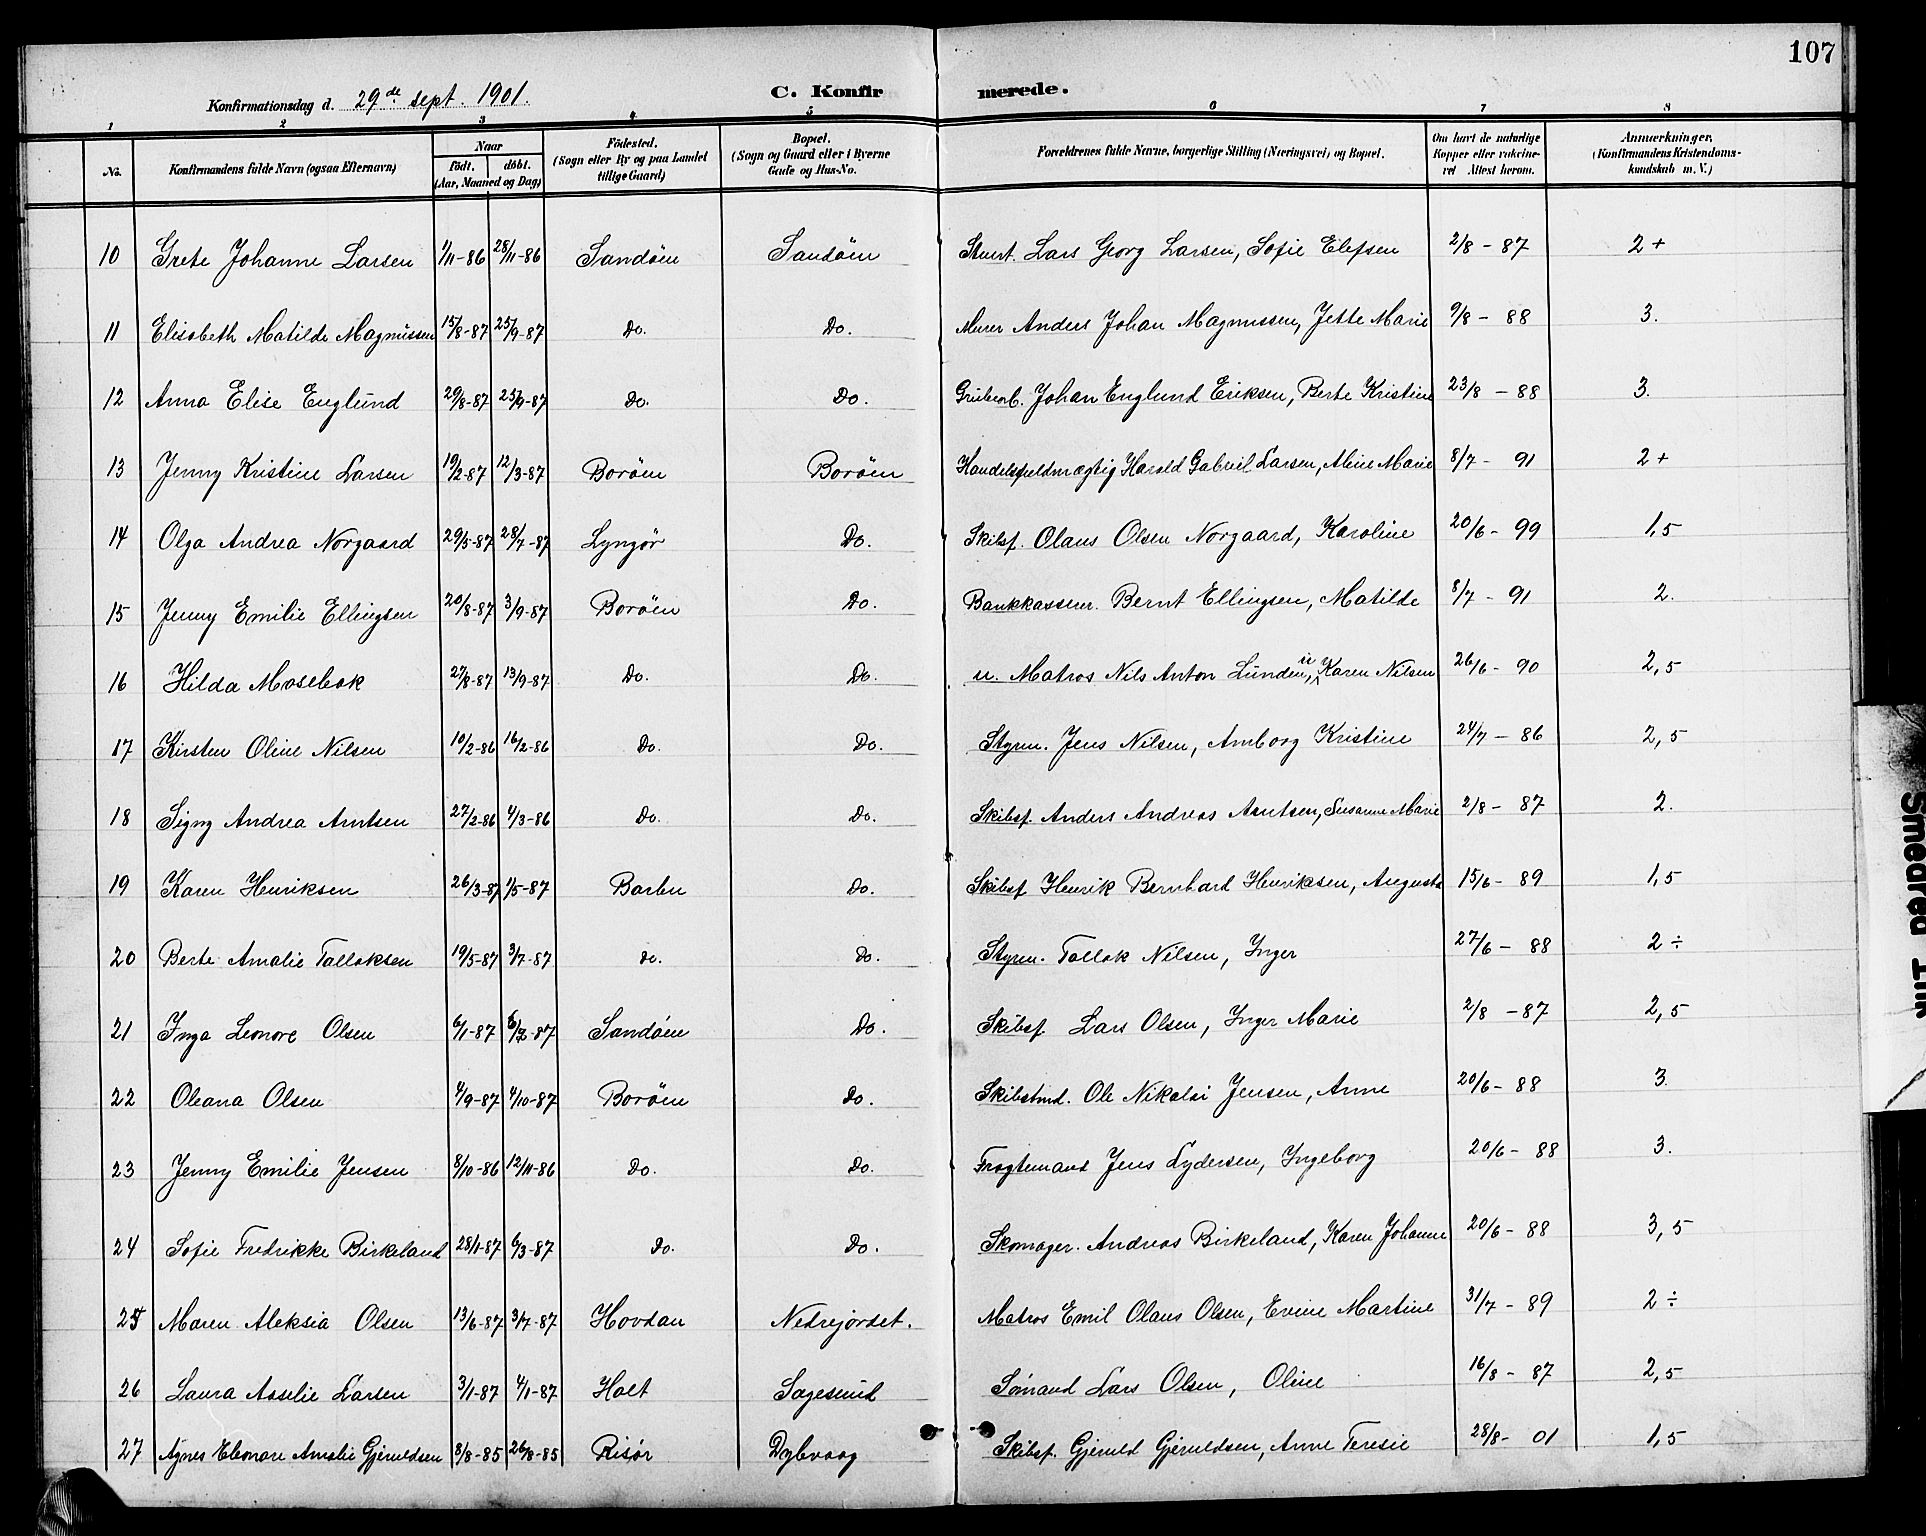 107
Konfirmationsdag d. 29de sept. 1901. C. Konfirmerede.
1 2 3 4 5 6 7 8
No. Konfirmandens fulde Navn (ogsaa Efternavn) Naar födt. döbt. (Aar, Maaned og Dag) Födested. (Sogn eller By og paa Landet tillige Gaard) Bopæl. (Sogn og Gaard eller i Byerne Gade og Hus-No. Forældrenes fulde Navne, borgerlige Stilling (Næringsvei) og Bopæl. Om havt de naturlige Kopper eller vakcineret Attest herom. Anmærkninger, (Konfirmandens Kristendomskundskab m. V.)
10 Grete Johanne Larsen 1/11-86 28/11-86 Sandöen Sandöen Stuert. Lars Georg Larsen, Sofie Elefsen 2/8 - 87 2 +
11 Elisabeth Matilde Magnussen 15/8-87 25/9-87 Do. Do. Murer Anders Johan Magnussen, Jette Marie 9/8 - 88 3.
12 Anna Elise Englund 29/8-87 25/9-87 Do. Do. Grubearb. Johan Englund Eriksen, Berte Kristine 23/8 - 88 3.
13 Jenny Kristine Larsen 19/2-87 12/3-87 Boröen Boröen Handelsfuldmægtig Harald Gabriel Larsen, Aline Marie 8/7 - 91 2 +
14 Olga Andrea Norgaard 29/5-87 28/7-87 Lyngör Do. Skibsf. Olaus Olsen Norgaard, Karoline 20/6 - 99 1,5
15 Jenny Emilie Ellingsen 20/8-87 3/9-87 Boröen Do. Bankkasserer. Bernt Ellingsen, Matilde 8/7 - 91 2.
16 Hilda Mosebak 27/8-87 13/9-87 Do. Do. u. Matros Nils Anton Lunden, u Karen Nilsen 26/6 - 90 2,5
17 Kirsten Oline Nilsen 10/2-86 16/2-86 Do. Do. Styrm. Jens Nilsen, Amborg Kristine 24/7 - 86 2,5
18 Signy Andrea Arntsen 27/2-86 4/3-86 Do. Do. Skibsf. Anders Andreas Arntsen, Susanne Marie 2/8 - 87 2.
19 Karen Henriksen 26/3-87 1/5-87 Barbu Do. Skibsf Henrik Bernhard Henriksen, Augusta 15/6 - 89 1,5
20 Berte Amalie Talloksen 19/5-87 3/7-87 do. Do. Styrm. Tallak Nilsen, Inger 27/6 - 88 2 ÷
21 Inga Leonore Olsen 6/1-87 -87 Sandöen Do. Skibsf Lars Olsen, Inger Marie 2/8 - 87 2,5
22 Oleana Olsen 4/9-87 4/10-87 Boröen do. Skibstmd. Ole Nikolai Jensen, Anne 20/6 - 88 3.
23 Jenny Emilie Jensen 8/10-86 12/11-86 Do. Do. Fragtemand Jens Lydersen, Ingeborg 20/6 - 88 3.
24 Sofie Fredrikke Birkeland 28/1-87 6/3-87 Do. Do. Skomager. Andreas Birkeland, Karen Johanne 20/6 - 88 3,5
25 Maren Aleksia Olsen 13/6-87 3/7-87 Hovdan Nedrejordet. Matros Emil Olaus Olsen, Evine Martine 31/7 - 89 2 ÷
26 Laura Asselie Larsen 3/1-87 4/1-87 Holt Sagesund Sömand Lars Olsen, Oline 16/8 - 87 2,5
27 Agnes Eleonore Amalie Gjeruldsen 8/8-85 26/8-85 Risör Dybvaag Skibsf. Gjeruld Gjeruldsen, Anne Teresie 28/8 - 01 1,5